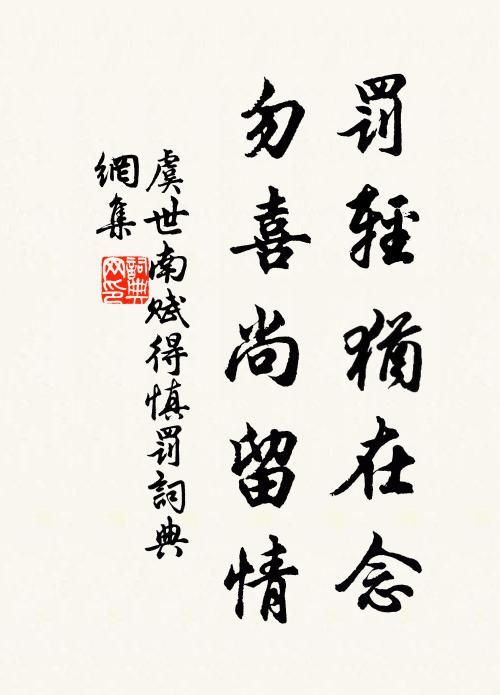 罰輕猶在念
勿喜尚留情
虞世南賦得慎罰詞典
網集
詞典
网印